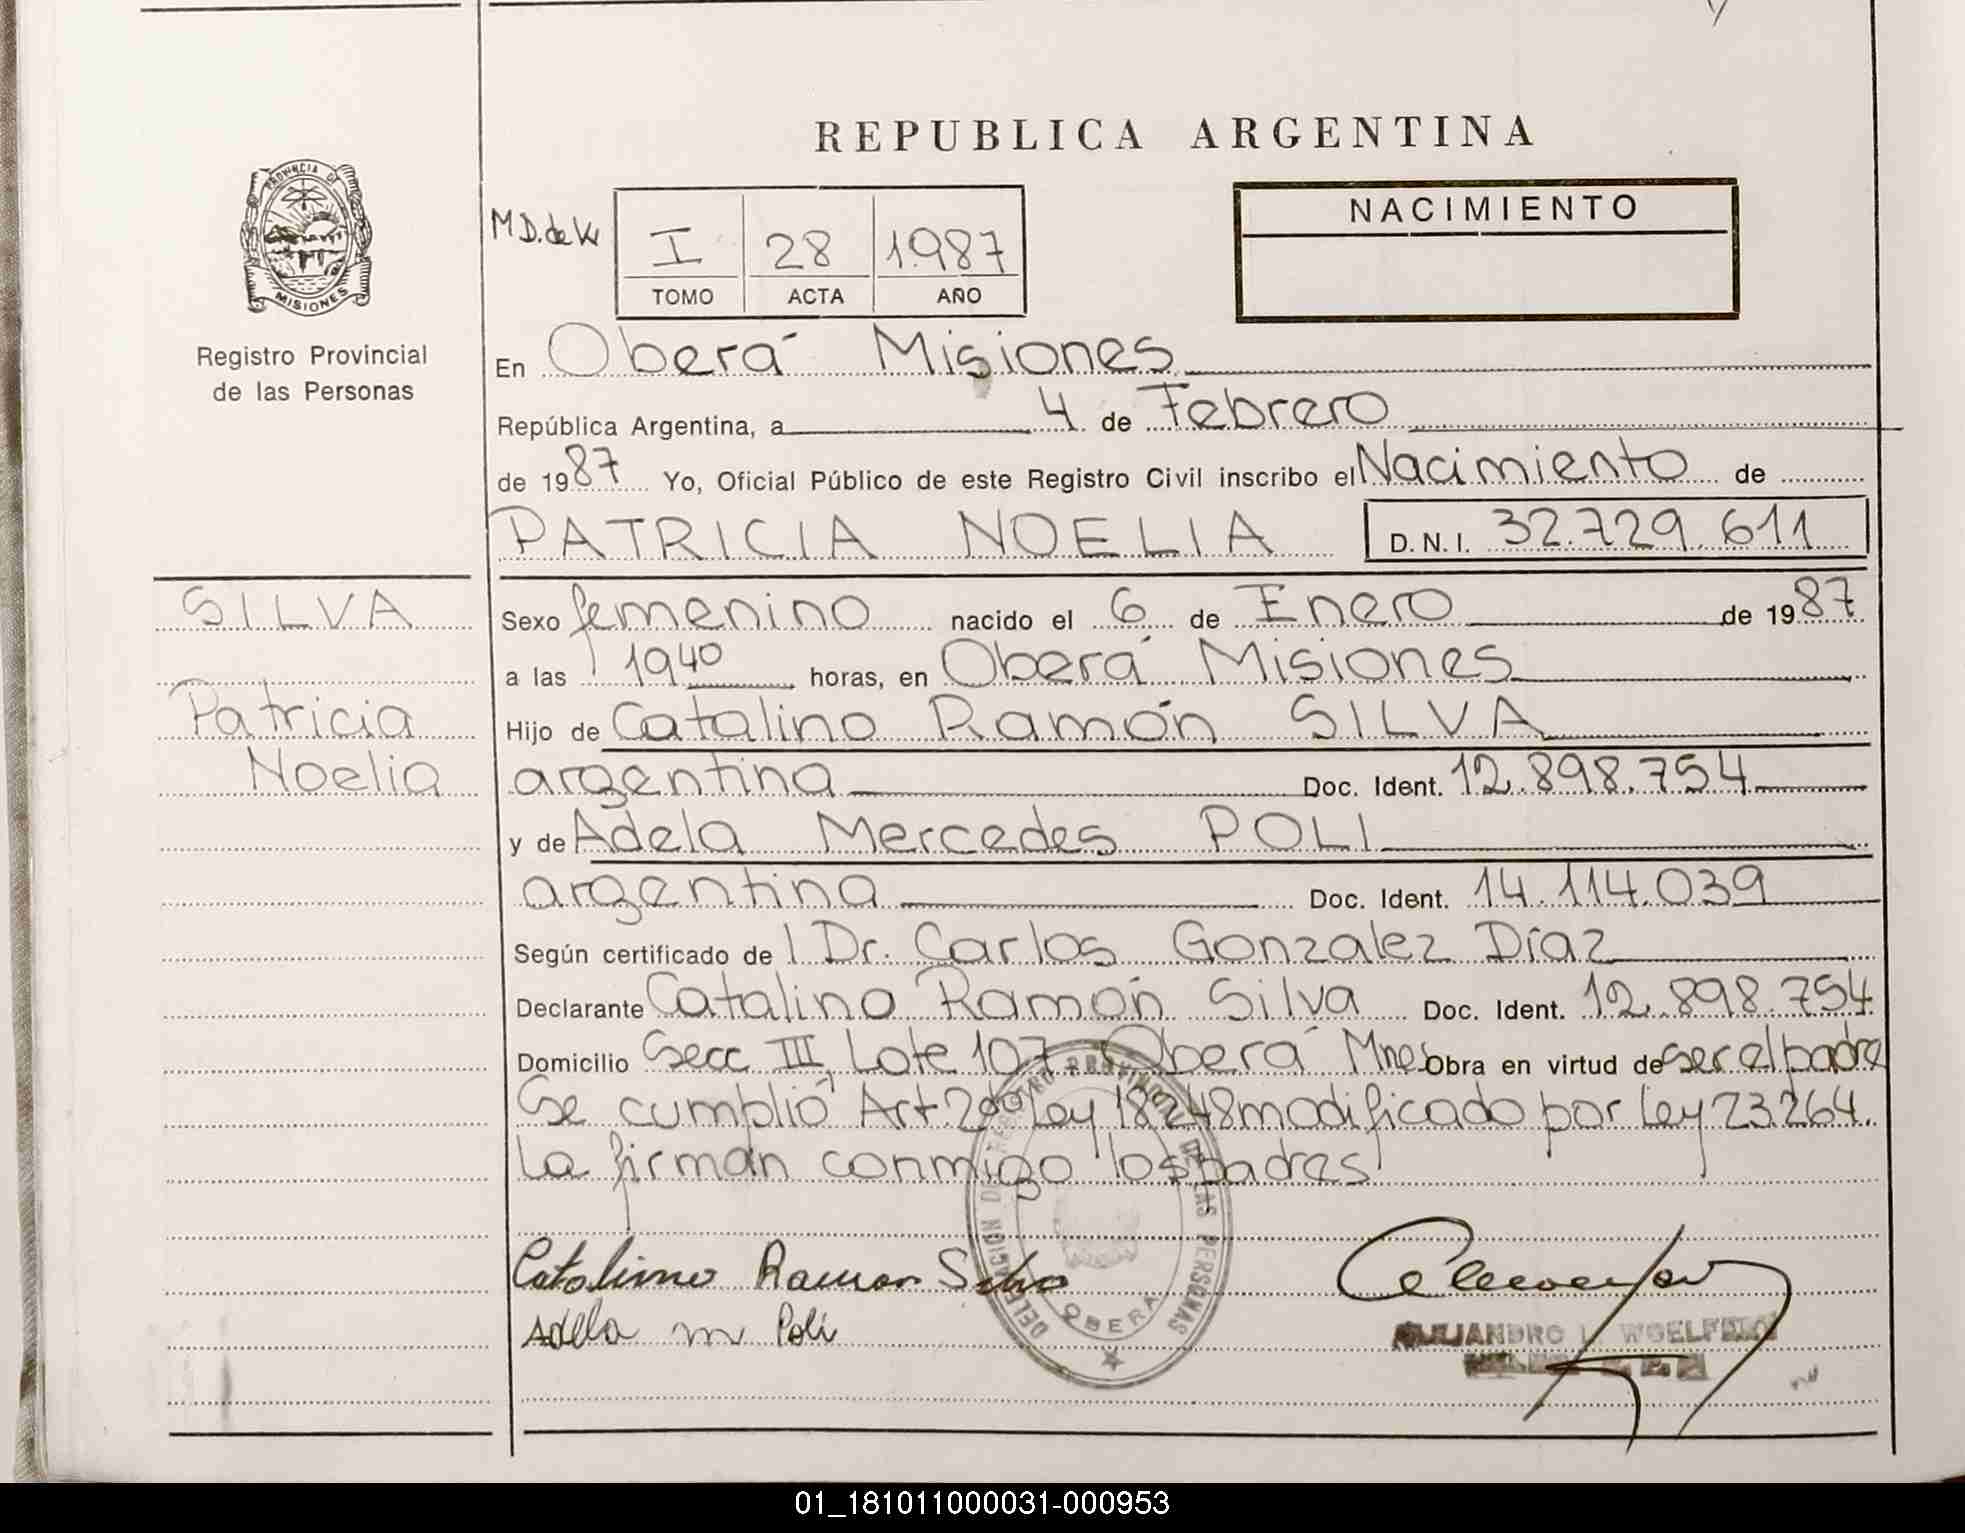 REPUBLICA ARGENTINA
PROVINCIA DE
MISIONES
Registro Provincial
de las Personas
M D. de K
I 28 1987
TOMO ACTA AÑO
NACIMIENTO
En Oberá Misiones
República Argentina, a 4 de Febrero
de 1987 Yo, Oficial Público de este Registro Civil inscribo el Nacimiento de
PATRICIA NOELIA D.N.I. 32.729.611
SILVA
Patricia
Noelia
Sexo femenino nacido el 6 de Enero de 1987
a las 19 40 horas, en Oberá Misiones
Hijo de Catalino Ramón SILVA
argentina Doc. Ident. 12.898.754
y de Adela Mercedes POLI
argentina Doc. Ident. 14.114.039
Según certificado de l Dr. Carlos Gonzalez Díaz
Declarante Catalino Ramón Silva Doc. Ident. 12.898.754
Domicilio Secc III, Lote 107 Oberá Mnes Obra en virtud de ser el padre
Se cumplió Art. 2do Ley 18248 modificado por Ley 23.264.
La firman conmigo los padres
DELEGACION DE REGISTRO PROVINCIAL DE LAS PERSONAS
OBERA
Catalino Ramon Silva
Adela M Poli
ALEJANDRO L.
01_181011000031-000953